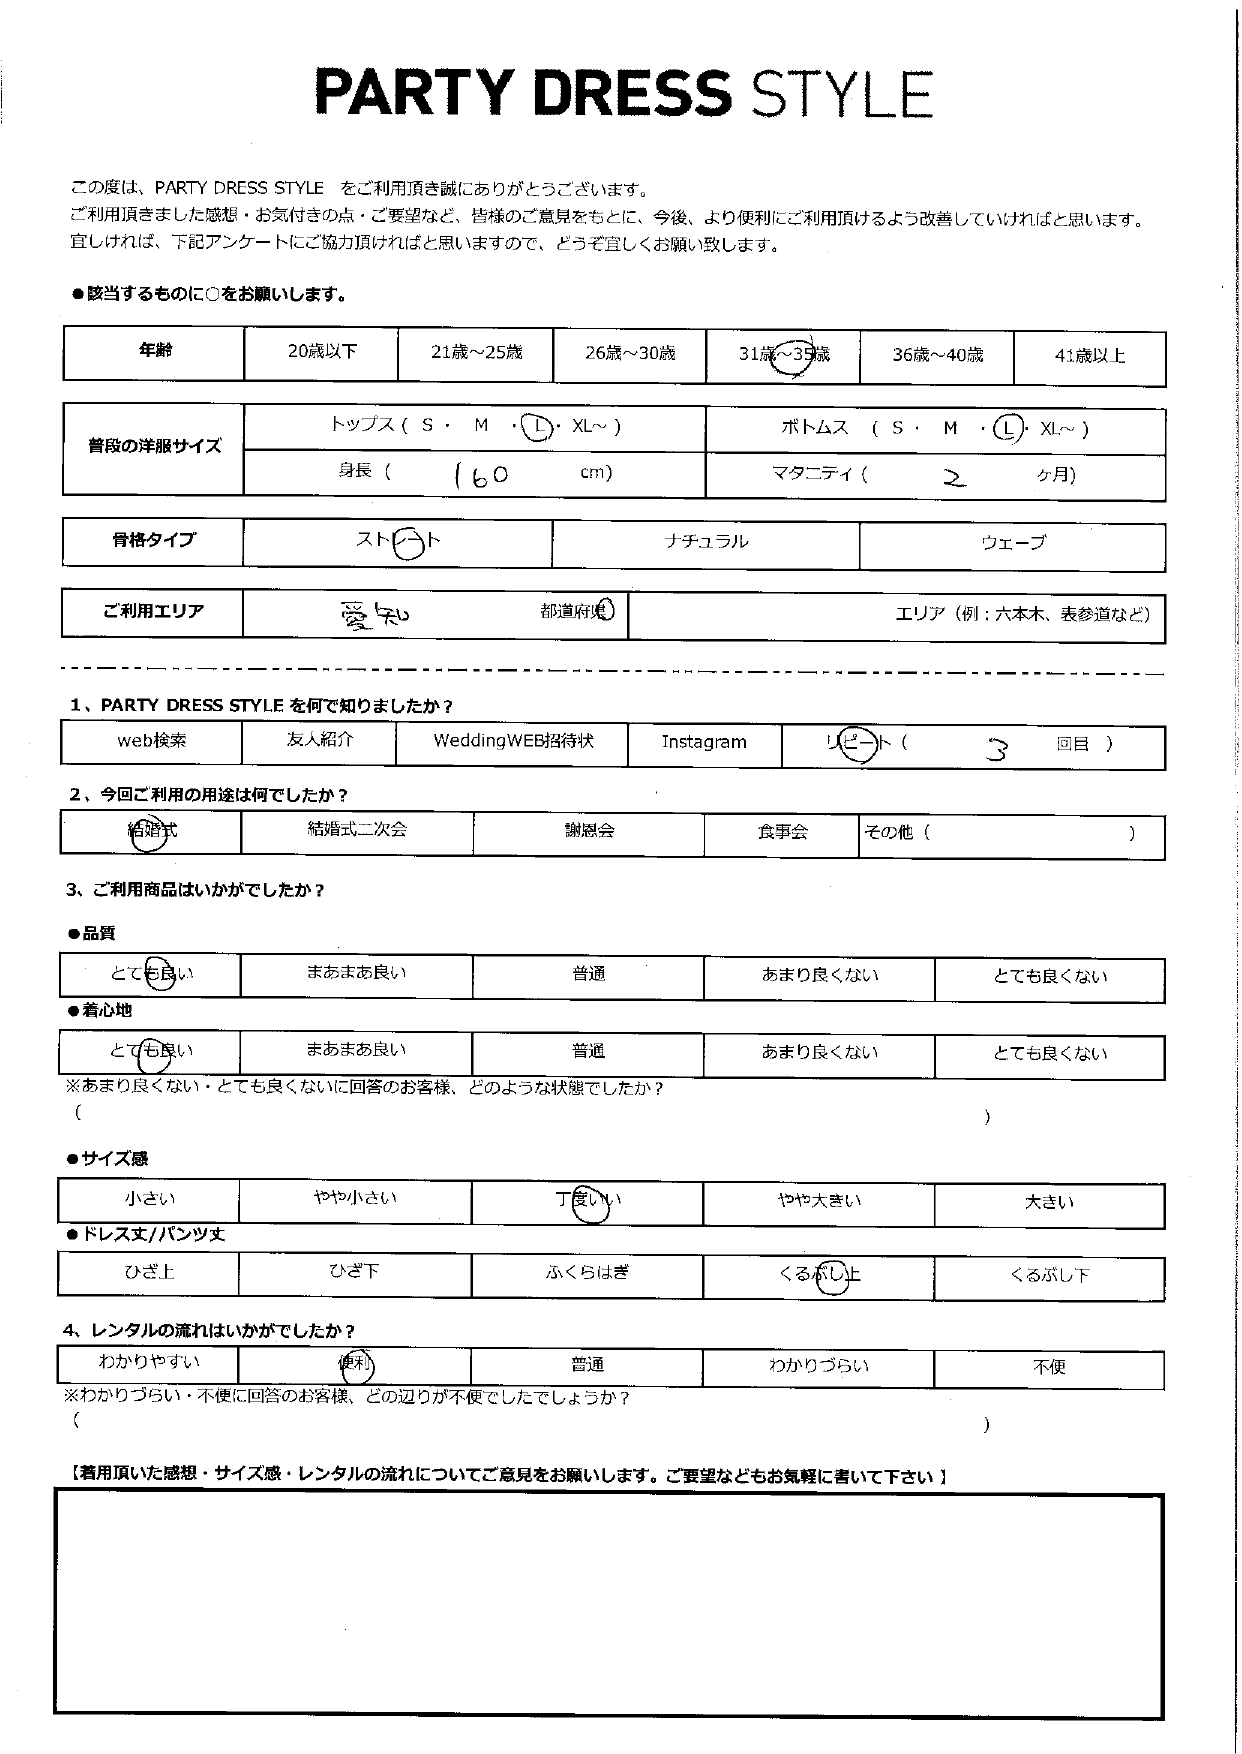 PARTY DRESS STYLE
この度は、PARTY DRESS STYLE をご利用頂き誠にありがとうございます。
ご利用頂きました感想・お気付きの点・ご要望など、皆様のご意見をもとに、今後、より便利にご利用頂けるよう改善していければと思います。
宜しければ、下記アンケートにご協力頂ければと思いますので、どうぞ宜しくお願い致します。
●該当するものに○をお願いします。
年齢 20歳以下 21歳～25歳 26歳～30歳 31歳～35歳 36歳～40歳 41歳以上
普段の洋服サイズ
トップス ( S ・ M ・ L ・ XL～ ) ボトムス ( S ・ M ・ L ・ XL～ )
身長 ( 160 cm) マタニティ ( 2 ケ月)
骨格タイプ ストレート ナチュラル ウェーブ
ご利用エリア 愛知 都道府県 エリア（例：六本木、表参道など）
1、PARTY DRESS STYLE を何で知りましたか？
web検索 友人紹介 WeddingWEB招待状 Instagram リピート ( 3 回目 )
2、今回ご利用の用途は何でしたか？
結婚式 結婚式二次会 謝恩会 食事会 その他 ( )
3、ご利用商品はいかがでしたか？
●品質
とても良い まあまあ良い 普通 あまり良くない とても良くない
●着心地
とても良い まあまあ良い 普通 あまり良くない とても良くない
※あまり良くない・とても良くないに回答のお客様、どのような状態でしたか？
( )
●サイズ感
小さい やや小さい 丁度いい やや大きい 大きい
●ドレス丈/パンツ丈
ひざ上 ひざ下 ふくらはぎ くるぶし上 くるぶし下
4、レンタルの流れはいかがでしたか？
わかりやすい 便利 普通 わかりづらい 不便
※わかりづらい・不便に回答のお客様、どの辺りが不便でしたでしょうか？
( )
【着用頂いた感想・サイズ感・レンタルの流れについてご意見をお願いします。ご要望などもお気軽に書いて下さい】